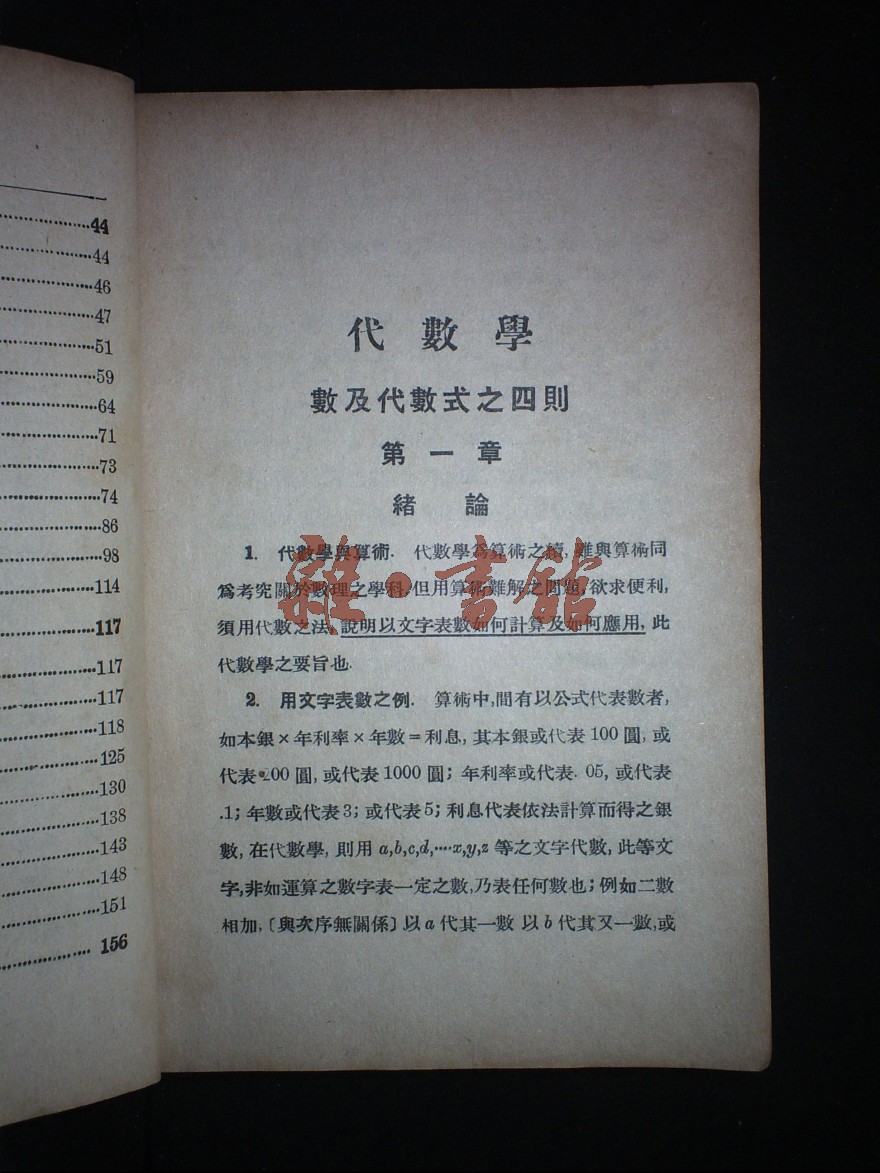 44
44
46
47
51
59
64
71
73
74
86
98
114
117
117
117
118
125
130
138
143
148
151
156
代數學
數及代數式之四則
第一章
緒論
1. 代數學與算術. 代數學爲算術之續, 雖與算術同
爲考究關於數理之學科, 但用算術難解之問題, 欲求便利,
須用代數之法, 說明以文字表數如何計算及如何應用, 此
代數學之要旨也.
2. 用文字表數之例. 算術中, 間有以公式代表數者,
如本銀×年利率×年數=利息, 其本銀或代表 100 圓, 或
代表 200 圓, 或代表 1000 圓; 年利率或代表. 05, 或代表
.1; 年數或代表 3; 或代表 5; 利息代表依法計算而得之銀
數, 在代數學, 則用 a,b,c,d,····x,y,z 等之文字代數, 此等文
字, 非如運算之數字表一定之數, 乃表任何數也; 例如二數
相加, 〔與次序無關係〕以 a 代其一數 以 b 代其又一數, 或
雜·書館